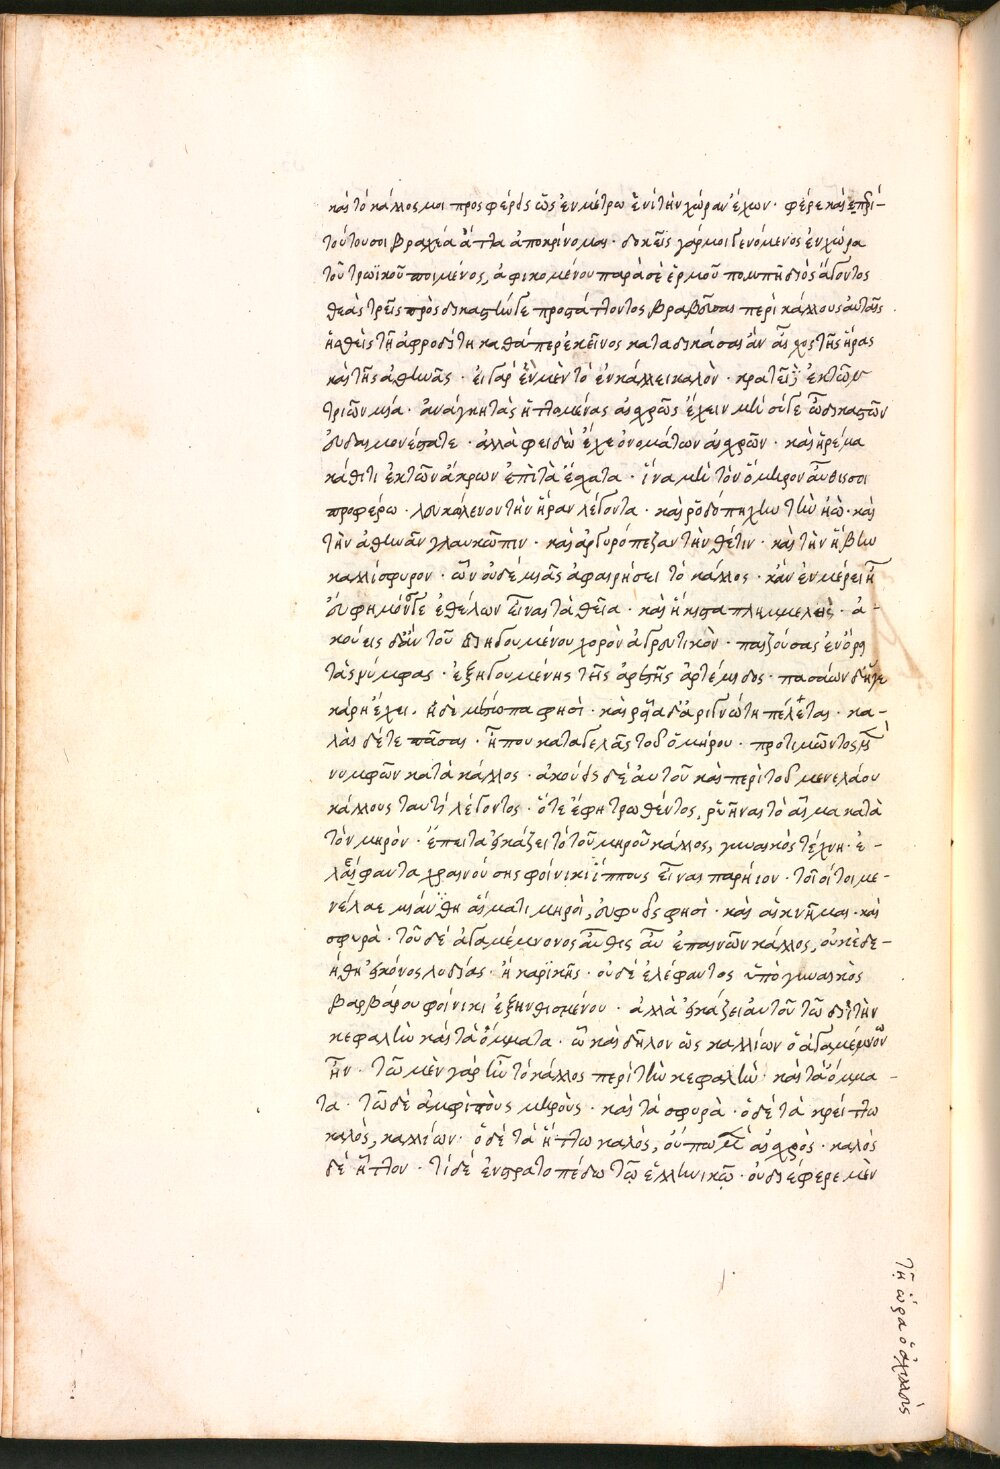 καὶ τὸ κάλλος μοι προσφέρεις ὡς ἐν μέτρω ἑνὶ τὴν χώραν ἔχων· φέρε καὶ ἐπὶ
τούτου σοι βραχέα ἄττα ἀποκρίνομαι· δοκεῖς γάρ μοι γενόμενος ἐν χώρα
τοῦ τρωϊκοῦ ποιμένος, ἀφικομένου παρὰ σὲ ἑρμοῦ πομπῆ διὸς ἄγοντος
θεὰς τρεῖς πρὸς δικαστήν γε προστάττοντος βραβεῦσαι περὶ κάλλους αὐταῖς
ἡσθεὶς τῆ ἀφροδίτη καθάπερ ἐκεῖνος καταδικάσαι ἂν αἶσχος τῆς ἥρας
καὶ τῆς ἀθηνᾶς· εἰ γὰρ ἓν μὲν τὸ ἐν κάλλει καλὸν· κρατεῖ δὲ ἐκ τῶν
τριῶν μία· ἀνάγκη τὰς ἡττομένας αἰσχρῶς ἔχειν μὴ σύ γε ὦ δικαστῶν
εὐδαιμονέστατε· ἀλλὰ φειδὼ ἔχε ὀνομάτων αἰσχρῶν· καὶ ἠρέμα
κάθιτι ἐκ τῶν ἄκρων ἐπὶ τὰ ἔσχατα· ἵνα μὴ τὸν ὅμηρον αὖθίς σοι
προφέρω· λευκώλενον τὴν ἥραν λέγοντα· καὶ ῥοδόπηχυν τὴν ἠὼ· καὶ
τὴν ἀθηνᾶν γλαυκῶπιν· καὶ ἀργυρόπεζαν τὴν θέτιν· καὶ τὴν ἥβην
καλλίσφυρον· ὧν οὐδεμιᾶς ἀφαιρήσει τὸ κάλλος· κἂν ἐν μέρει ἦ
εὐφημεῖν γε ἐθέλων εἶναι τὰ θεῖα· καὶ ἥκιστα πλημμελεῖς· ἀ-
κούεις δ' ἂν τοῦ διηγουμένου χορὸν ἀγρευτικὸν· παιζούσας ἐν ὄρει
τὰς νύμφας· ἐξηγουμένης τῆς ἀρετῆς ἀρτέμιδος· πασάων δ' ἥγε
κάρη ἔχει. ἠδὲ μέτωπα φησὶ· καὶ ῥεῖα δ' ἀριγνώτη πέλεται· κα-
λὰς δέ τε πᾶσαι· ἦ που καταγελᾶς τοῦ ὁμήρου· προτιμῶντος
νυμφῶν κατὰ κάλλος· ἀκούεις δὲ αὐτοῦ καὶ περὶ τοῦ μενελάου
κάλλους ταυτὶ λέγοντος· ὅτε ἔφη τρωθέντος, ῥυῆναι τὸ αἷμα κατὰ
τὸν μηρὸν· ἔπειτα εἰκάζει τὸ τοῦ μηροῦ κάλλος, γυναικὸς τέχνη· ἐ-
λέφαντα χραινούσης φοίνικι ἵππους εἶναι παρήϊον· τοῖοί τοι με-
νέλαε μιάνθη αἵματι μηροὶ, εὐφυεῖς φησὶ· καὶ αἱ κνῆμαι· καὶ
σφυρὰ· τοῦ δὲ ἀγαμέμνονος αὖθις αὖ ἐπαινῶν κάλλος, οὐκ ἐδε-
ήθη εἰκόνος λυδίας· ἢ καρϊκῆς· οὐδὲ ἐλέφαντος ὑπὸ γυναικὸς
βαρβάρου φοίνικι ἐξηνθισμένου· ἀλλὰ εἰκάζει αὐτοῦ τῶ διῒ τὴν
κεφαλὴν καὶ τὰ ὄμματα· ὧ καὶ δῆλον ὡς καλλίων ὁ ἀγαμέμνων
ἦν· τῶ μὲν γὰρ ἦν τὸ κάλλος περὶ τὴν κεφαλὴν· καὶ τὰ ὄμμα-
τα· τῶ δὲ ἀμφὶ τοὺς μηροὺς· καὶ τὰ σφυρὰ· ὁ δὲ τὰ κρείττω
καλὸς, καλλίων· ὁ δὲ τὰ ἥττω καλὸς, οὔπω μὲν αἰσχρὸς· καλὸς
δὲ ἧττον· τί δὲ ἐν στρατοπέδω τῶ ἑλληνικῶ· οὐ διέφερε μὲν
τῆ ὥρα ὁ ἀχιλλεὺς